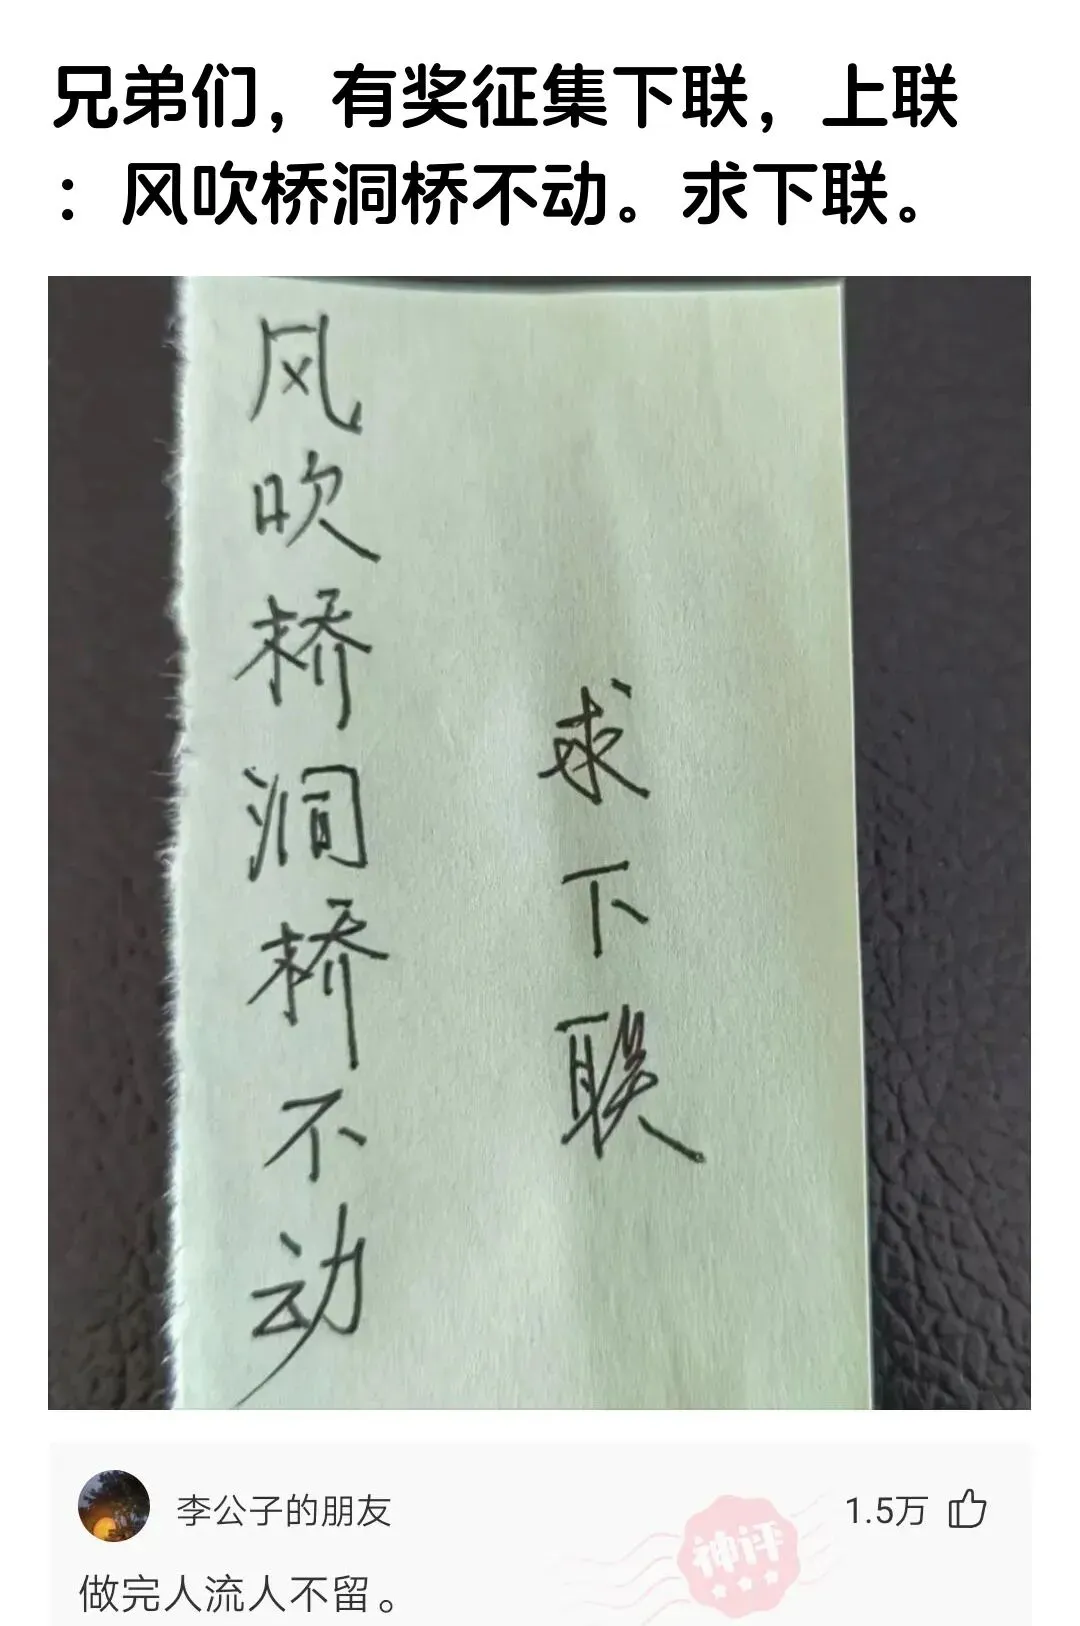 兄弟们，有奖征集下联，上联
：风吹桥洞桥不动。求下联。
风吹桥洞桥不动
求下联
李公子的朋友
1.5万
神评
做完人流人不留。